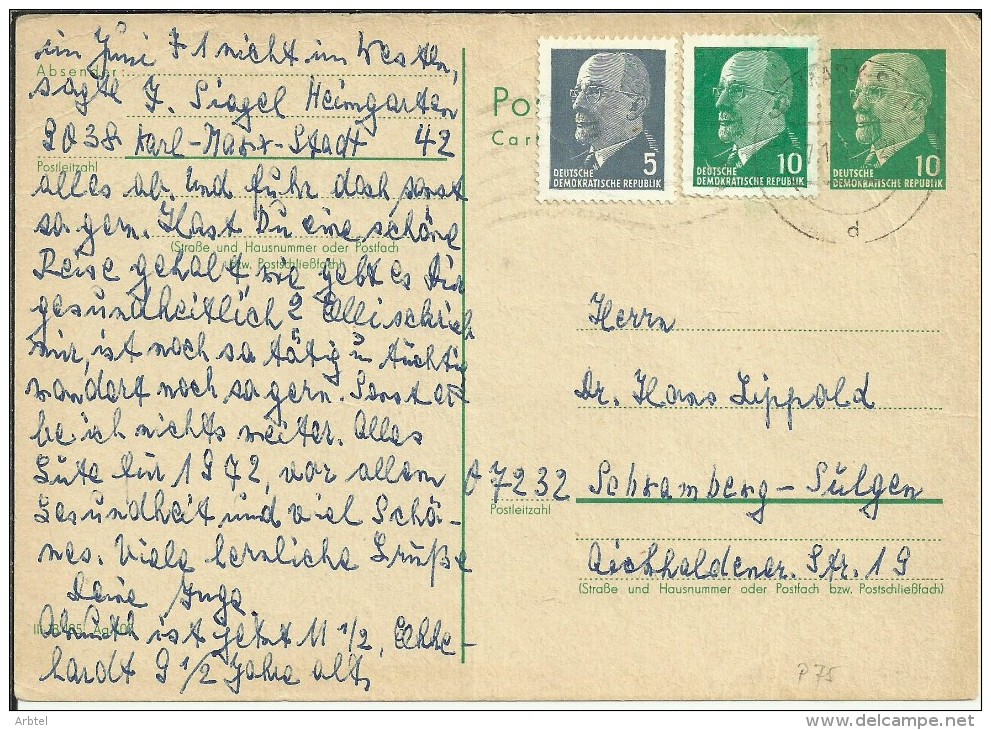 im Juni 71 nicht im Westen,
Absender:
sagte J. Siegel Heimgarten
9038 Karl-Marx-Stadt 42
Postleitzahl
alles ab. Und fuhr doch sonst
so gern. Hast Du eine schöne
(Straße und Hausnummer oder Postfach
Reise gehabt, wie geht es Dir
bzw. Postschließfach)
gesundheitlich? Elli schrieb
mir, ist noch so tätig u tüchtig
wandert noch so gern. Sonst
be ich nichts weiter. Alles
Gute für 1972, vor allem
Gesundheit und viel Schö-
nes. Viele herzliche Grüße
Deine Inge.
ist jetzt 11 1/2, Ekke-
hardt 9 1/2 Jahre alt,
III-18-185
Po
Cart
5
DEUTSCHE
DEMOKRATISCHE REPUBLIK
10
DEUTSCHE
DEMOKRATISCHE REPUBLIK
10
DEUTSCHE
DEMOKRATISCHE REPUBLIK
d
Herrn
Dr. Hans Lippold
D 7232 Schramberg-Sulgen
Postleitzahl
Aichhaldener. Str. 19
(Straße und Hausnummer oder Postfach bzw. Postschließfach)
P75
Arbtel
delcampe.net